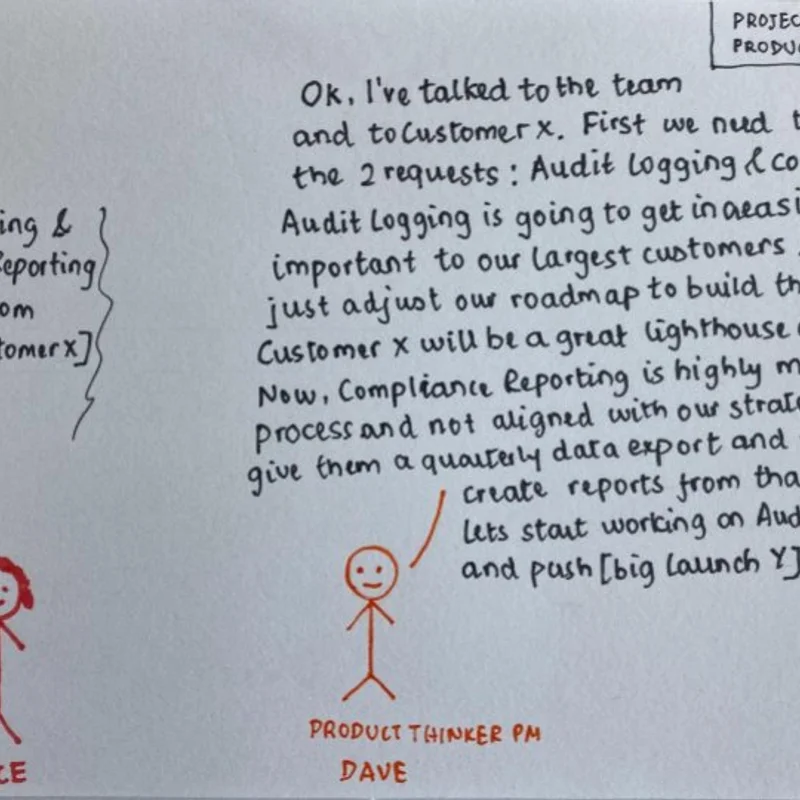 PROJEC
PRODUC
Ok, I've talked to the team
and to Customer X. First we need t
the 2 requests: Audit Logging & co
Audit Logging is going to get increasi
important to our largest customers
just adjust our roadmap to build th
Customer X will be a great lighthouse
Now, Compliance Reporting is highly m
process and not aligned with our strate
give them a quarterly data export and
create reports from tha
lets start working on Aud
and push [big launch Y]
ing &
Reporting
om
tomer X]
CE
PRODUCT THINKER PM
DAVE